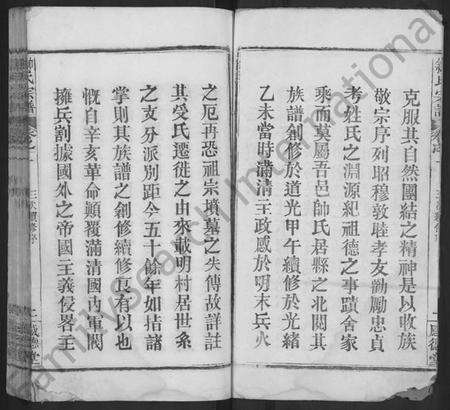 克服其自然團結之精神是以收族
敬宗序列昭穆敦睦孝友勸勵忠貞
考姓氏之淵源紀祖德之事蹟舍家
乘而莫屬吾邑帥氏居縣之北閱其
族譜創修於道光甲午續修於光緒
乙未當時滿清王政感於明末兵火
之厄再恐祖宗墳墓之失傳故詳註
其受氏遷徙之由來載明村居世系
之支分派別距今五十餘年如指諸
掌則其族譜之創修續修良有以也
慨自辛亥革命顛覆滿清國內軍閥
擁兵割據國外之帝國主義侵畧主
帥氏宗譜
卷之
三次續修序
二
威德堂
FamilySearch International